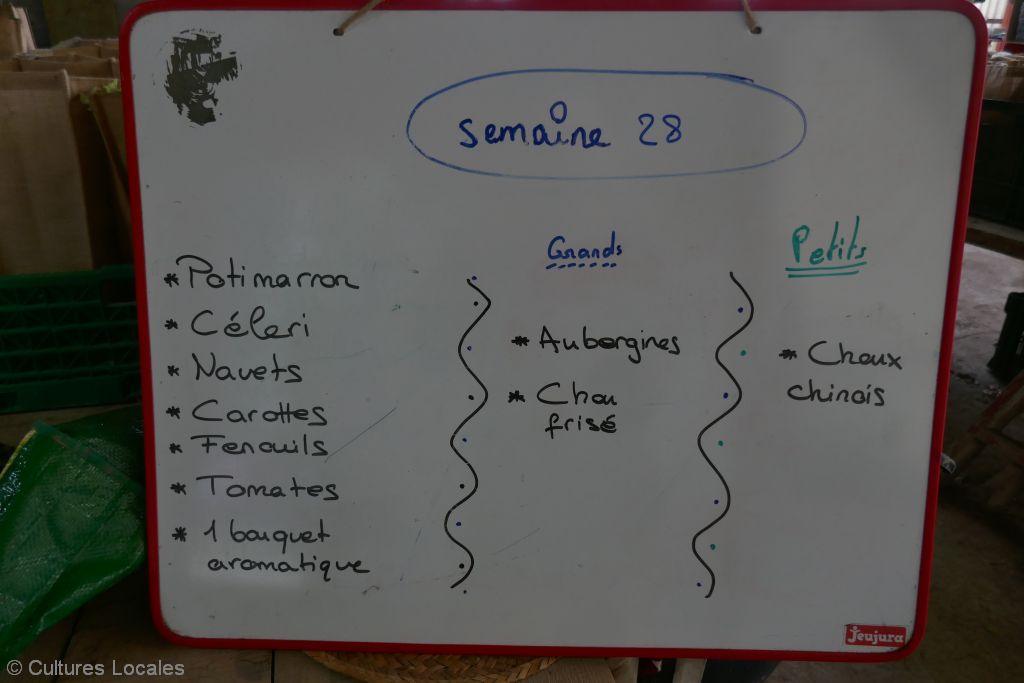 semaine 28
* Potimarron
* Céleri
* Navets
* Carottes
* Fenouils
* Tomates
* 1 bouquet
aromatique
Grands
* Aubergines
* Chou
frisé
Petits
* Choux
chinois
Jeujura
© Cultures Locales